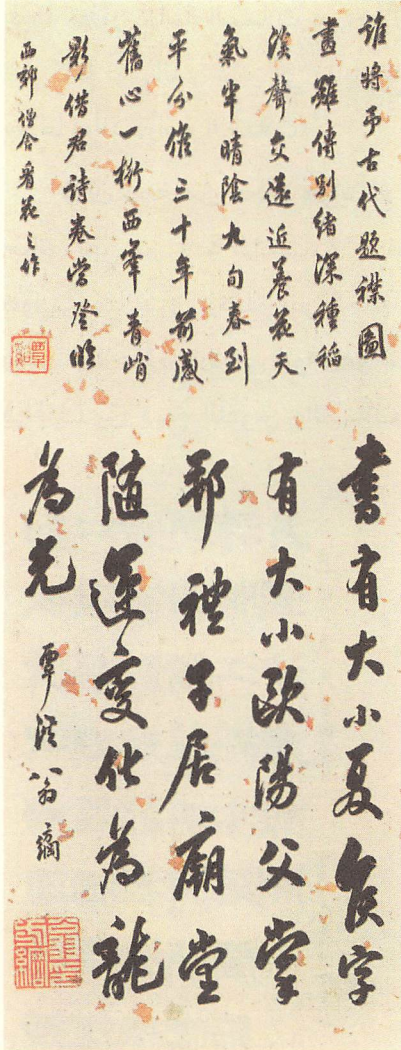 誰將弔古代題襟圖
畫雖傳別緒深種稻
溪聲交遠近養花天
氣半晴陰九旬春到
平分候三十年前感
舊心一桁西峯青峭
影借君詩卷當登臨
西郊僧舍看花之作
覃溪
書有大小夏侯字
有大小歐陽父掌
邦禮子居廟堂
隨運變化為龍
為光
覃溪翁方綱